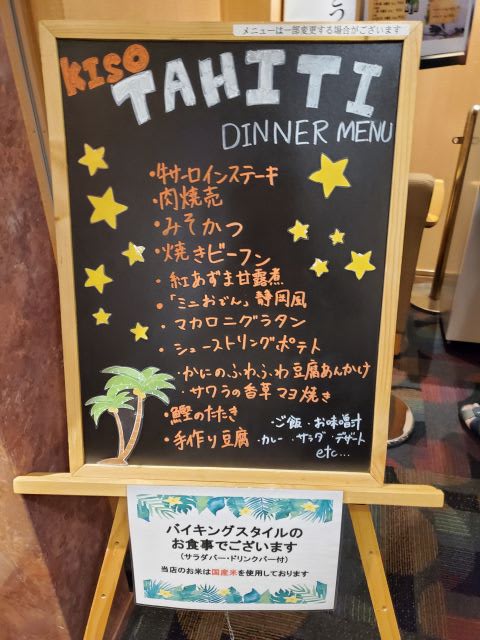 メニューは一部変更する場合がございます
KISO
TAHITI
DINNER MENU
・牛サーロインステーキ
・肉焼売
・みそかつ
・焼きビーフン
・紅あずま甘露煮
・「ミニおでん」静岡風
・マカロニグラタン
・シューストリングポテト
・かにのふわふわ豆腐あんかけ
・サワラの香草マヨ焼き
・鰹のたたき
・手作り豆腐
・ご飯・お味噌汁
・カレー・サラダ・デザート
etc...
バイキングスタイルの
お食事でございます
(サラダバー・ドリンクバー付)
当店のお米は国産米を使用しております
う